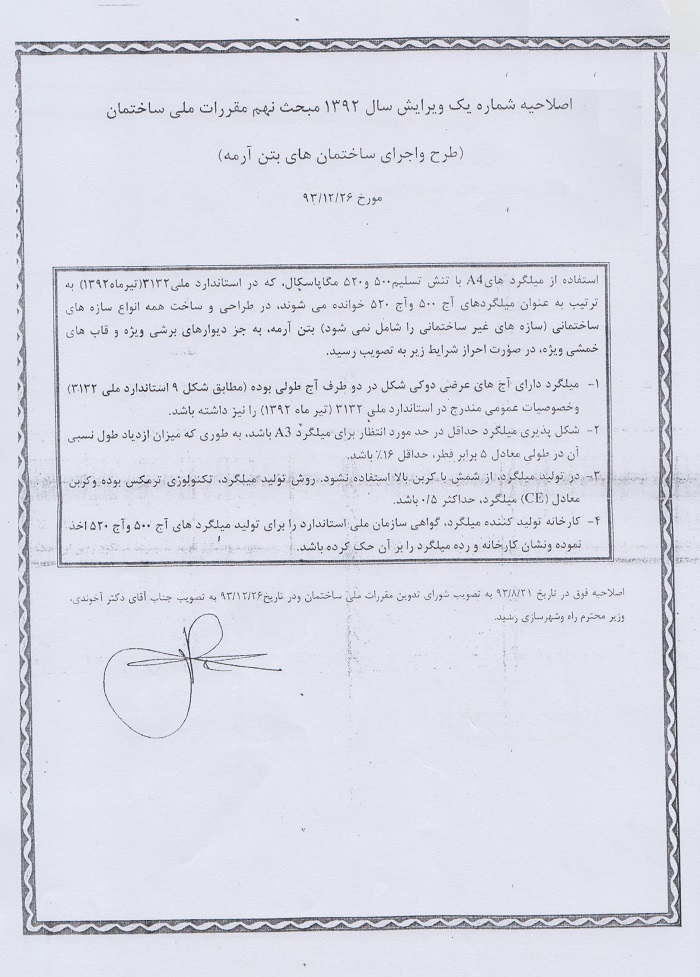 اصلاحیه شماره یک ویرایش سال ۱۳۹۲ مبحث نهم مقررات ملی ساختمان
(طرح واجرای ساختمان های بتن آرمه)
مورخ ۹۳/۱۲/۲۶
استفاده از میلگرد هایA4 با تنش تسلیم۵۰۰ و۵۲۰ مگاپاسکال، که در استاندارد ملی۳۱۳۲(تیرماه۱۳۹۲) به
ترتیب به عنوان میلگردهای آج ۵۰۰ وآج ۵۲۰ خوانده می شوند، در طراحی و ساخت همه انواع سازه های
ساختمانی (سازه های غیر ساختمانی را شامل نمی شود) بتن آرمه، به جز دیوارهای برشی ویژه و قاب های
خمشی ویژه، در صورت احراز شرایط زیر به تصویب رسید.
۱- میلگرد دارای آج های عرضی دوکی شکل در دو طرف آج طولی بوده (مطابق شکل ۹ استاندارد ملی ۳۱۳۲)
وخصوصیات عمومی مندرج در استاندارد ملی ۳۱۳۲ (تیر ماه ۱۳۹۲) را نیز داشته باشد.
۲- شکل پذیری میلگرد حداقل در حد مورد انتظار برای میلگرد A3 باشد، به طوری که میزان ازدیاد طول نسبی
آن در طولی معادل ۵ برابر قطر، حداقل ۱۶٪ باشد.
۳- در تولید میلگرد، از شمش با کربن بالا استفاده نشود. روش تولید میلگرد، تکنولوژی ترمکس بوده وکربن
معادل (CE) میلگرد، حداکثر ۰/۵ باشد.
۴- کارخانه تولید کننده میلگرد، گواهی سازمان ملی استاندارد را برای تولید میلگرد های آج ۵۰۰ وآج ۵۲۰ اخذ
نموده ونشان کارخانه و رده میلگرد را بر آن حک کرده باشد.
اصلاحیه فوق در تاریخ ۹۳/۸/۲۱ به تصویب شورای تدوین مقررات ملی ساختمان ودر تاریخ۹۳/۱۲/۲۶ به تصویب جناب آقای دکتر آخوندی،
وزیر محترم راه وشهرسازی رسید.